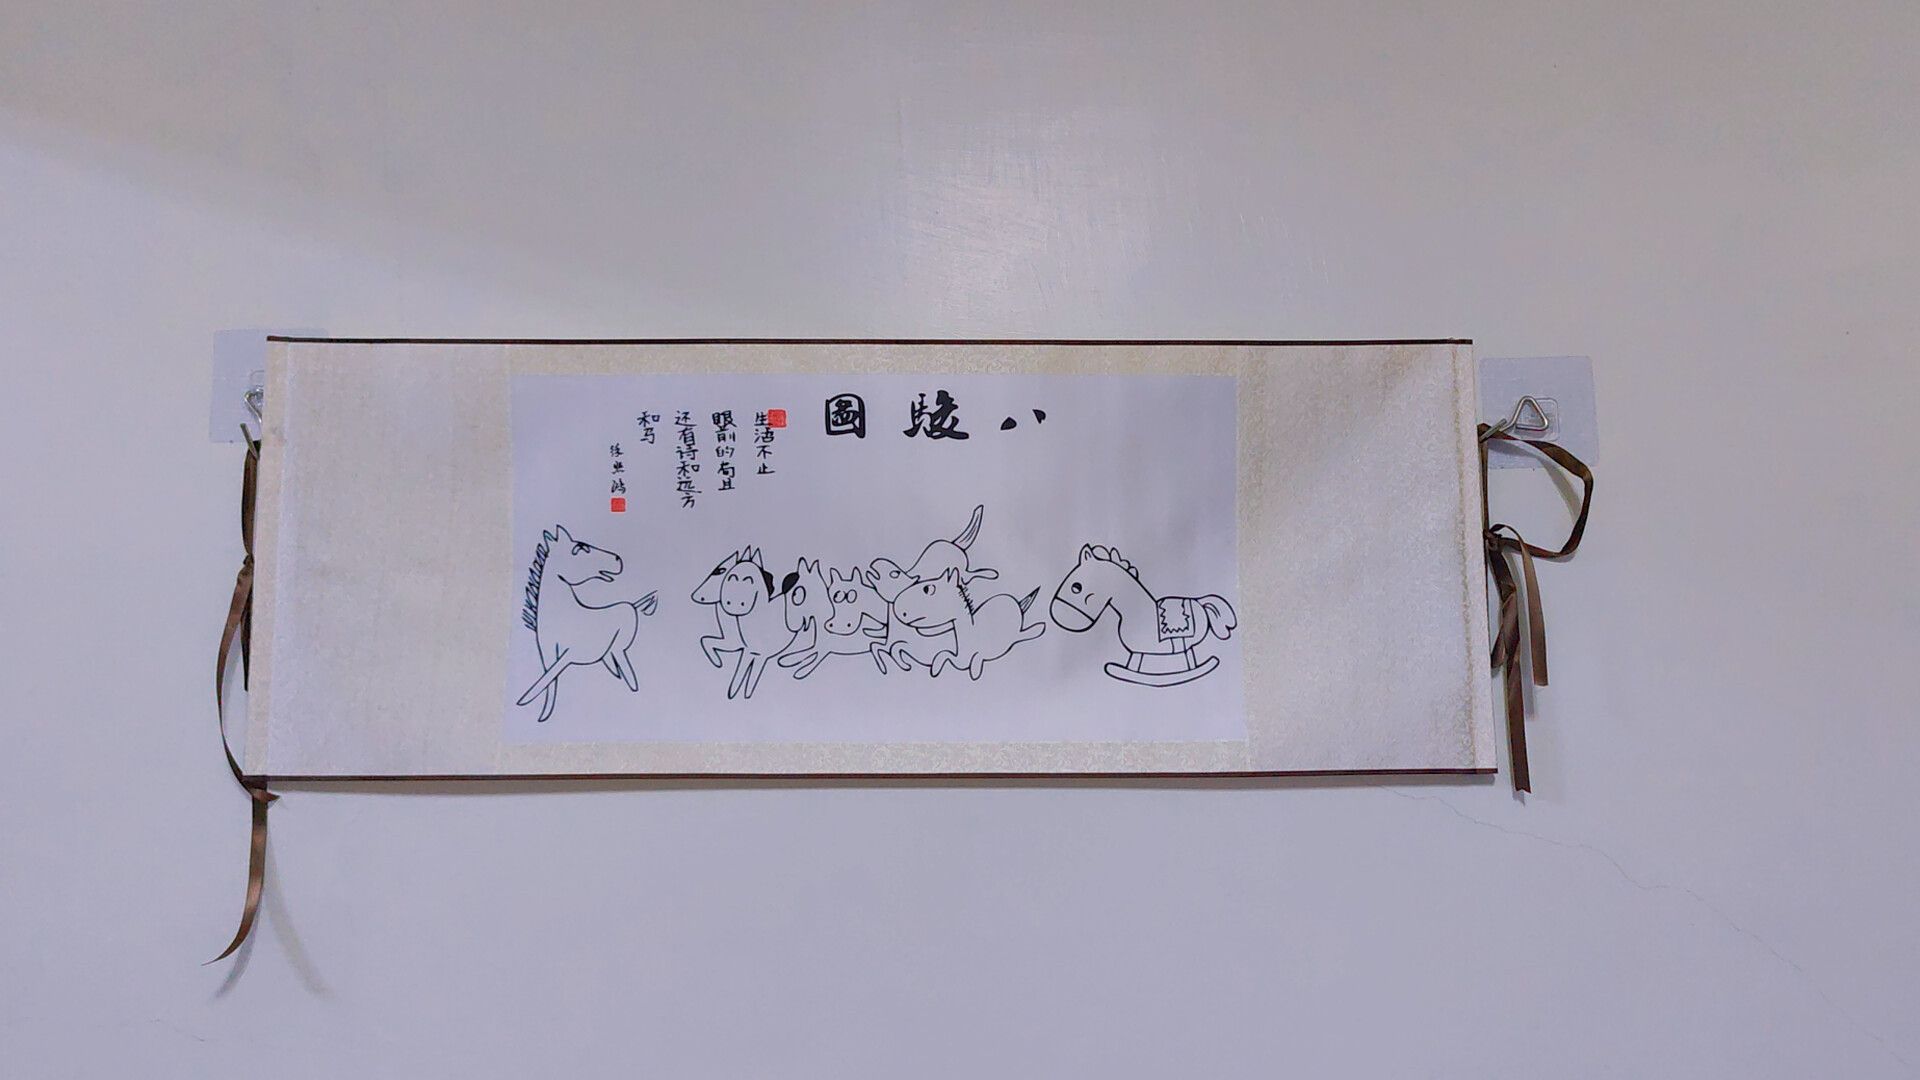 八駿圖
生活不止
眼前的苟且
还有诗和远方
和马